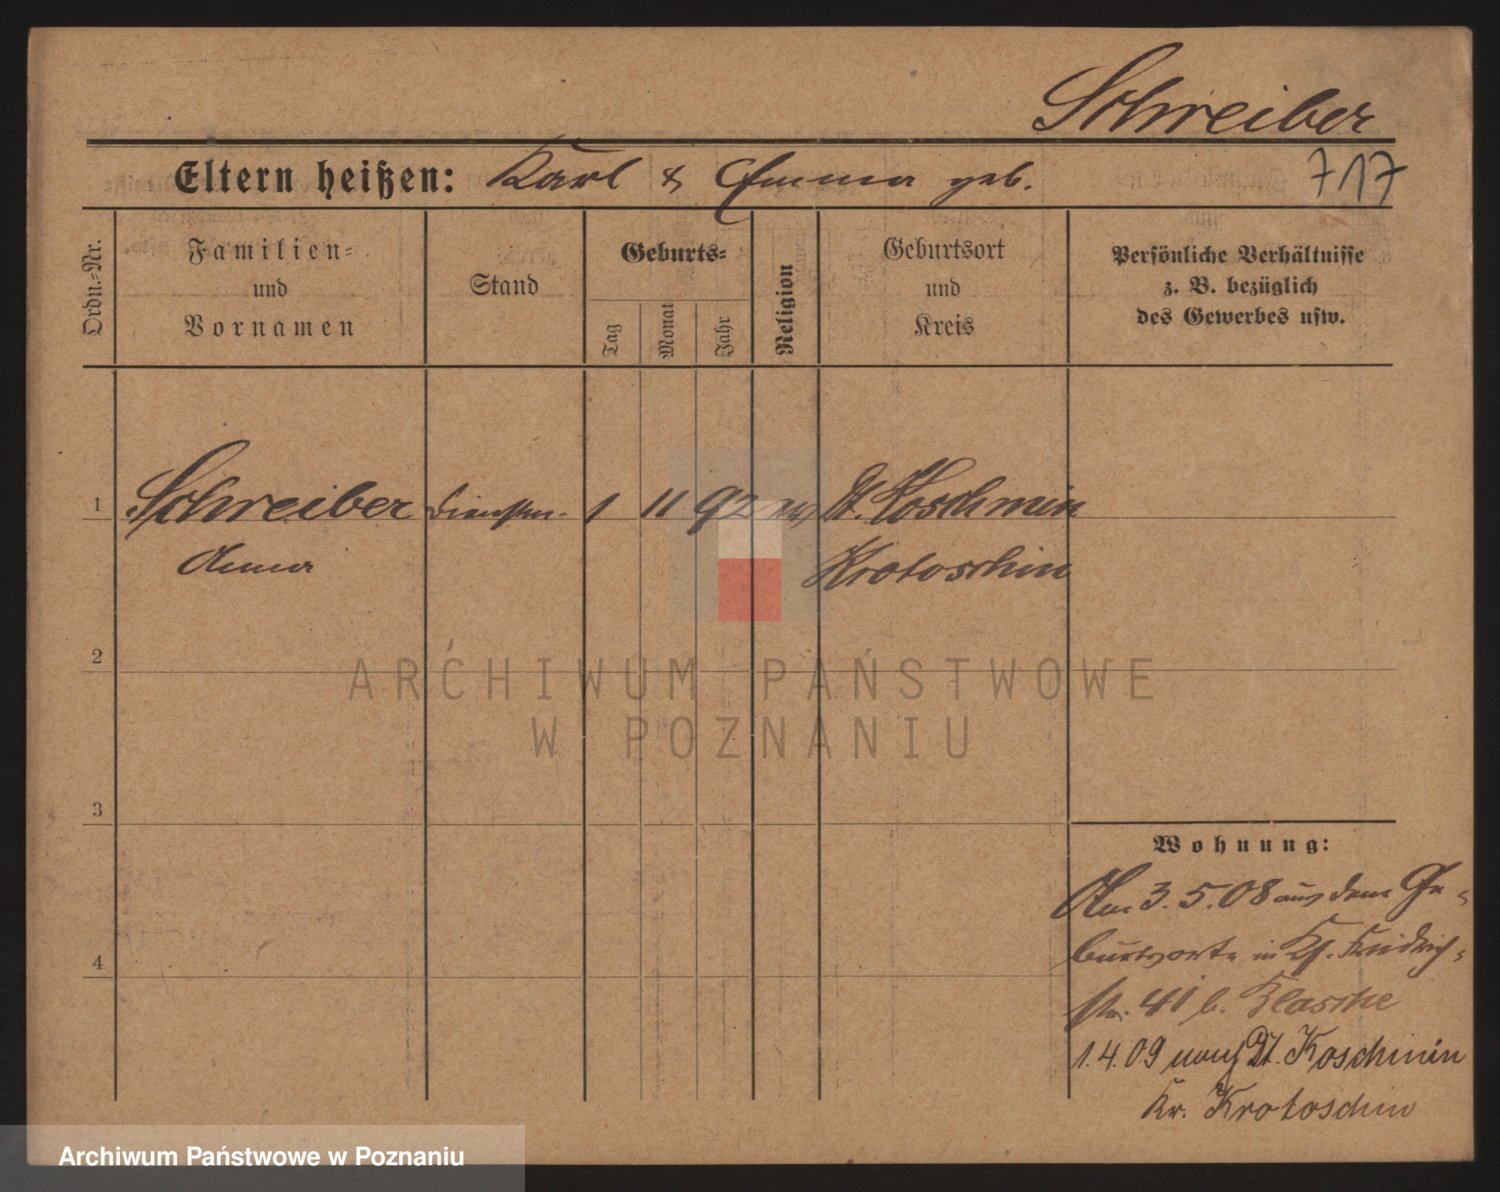 Schreiber
Eltern heißen: Karl & Emma geb.
717
Ordn.-Nr.
Familien-
und
Vornamen
Stand
Geburts-
Tag
Monat
Jahr
Religion
Geburtsort
und
Kreis
Persönliche Verhältnisse
z. B. bezüglich
des Gewerbes usw.
1
Schreiber
Anna
Dienstm.
1
11
92
Dt. Koschmin
Krotoschin
2
3
4
ARCHIWUM PAŃSTWOWE
W POZNANIU
Wohnung:
Am 3.5.08 aus dem Ge-
burtsorte in Friedrich-
str. 41 b. Klaschke
1.4.09 nach Dt. Koschmin
Kr. Krotoschin
Archiwum Państwowe w Poznaniu